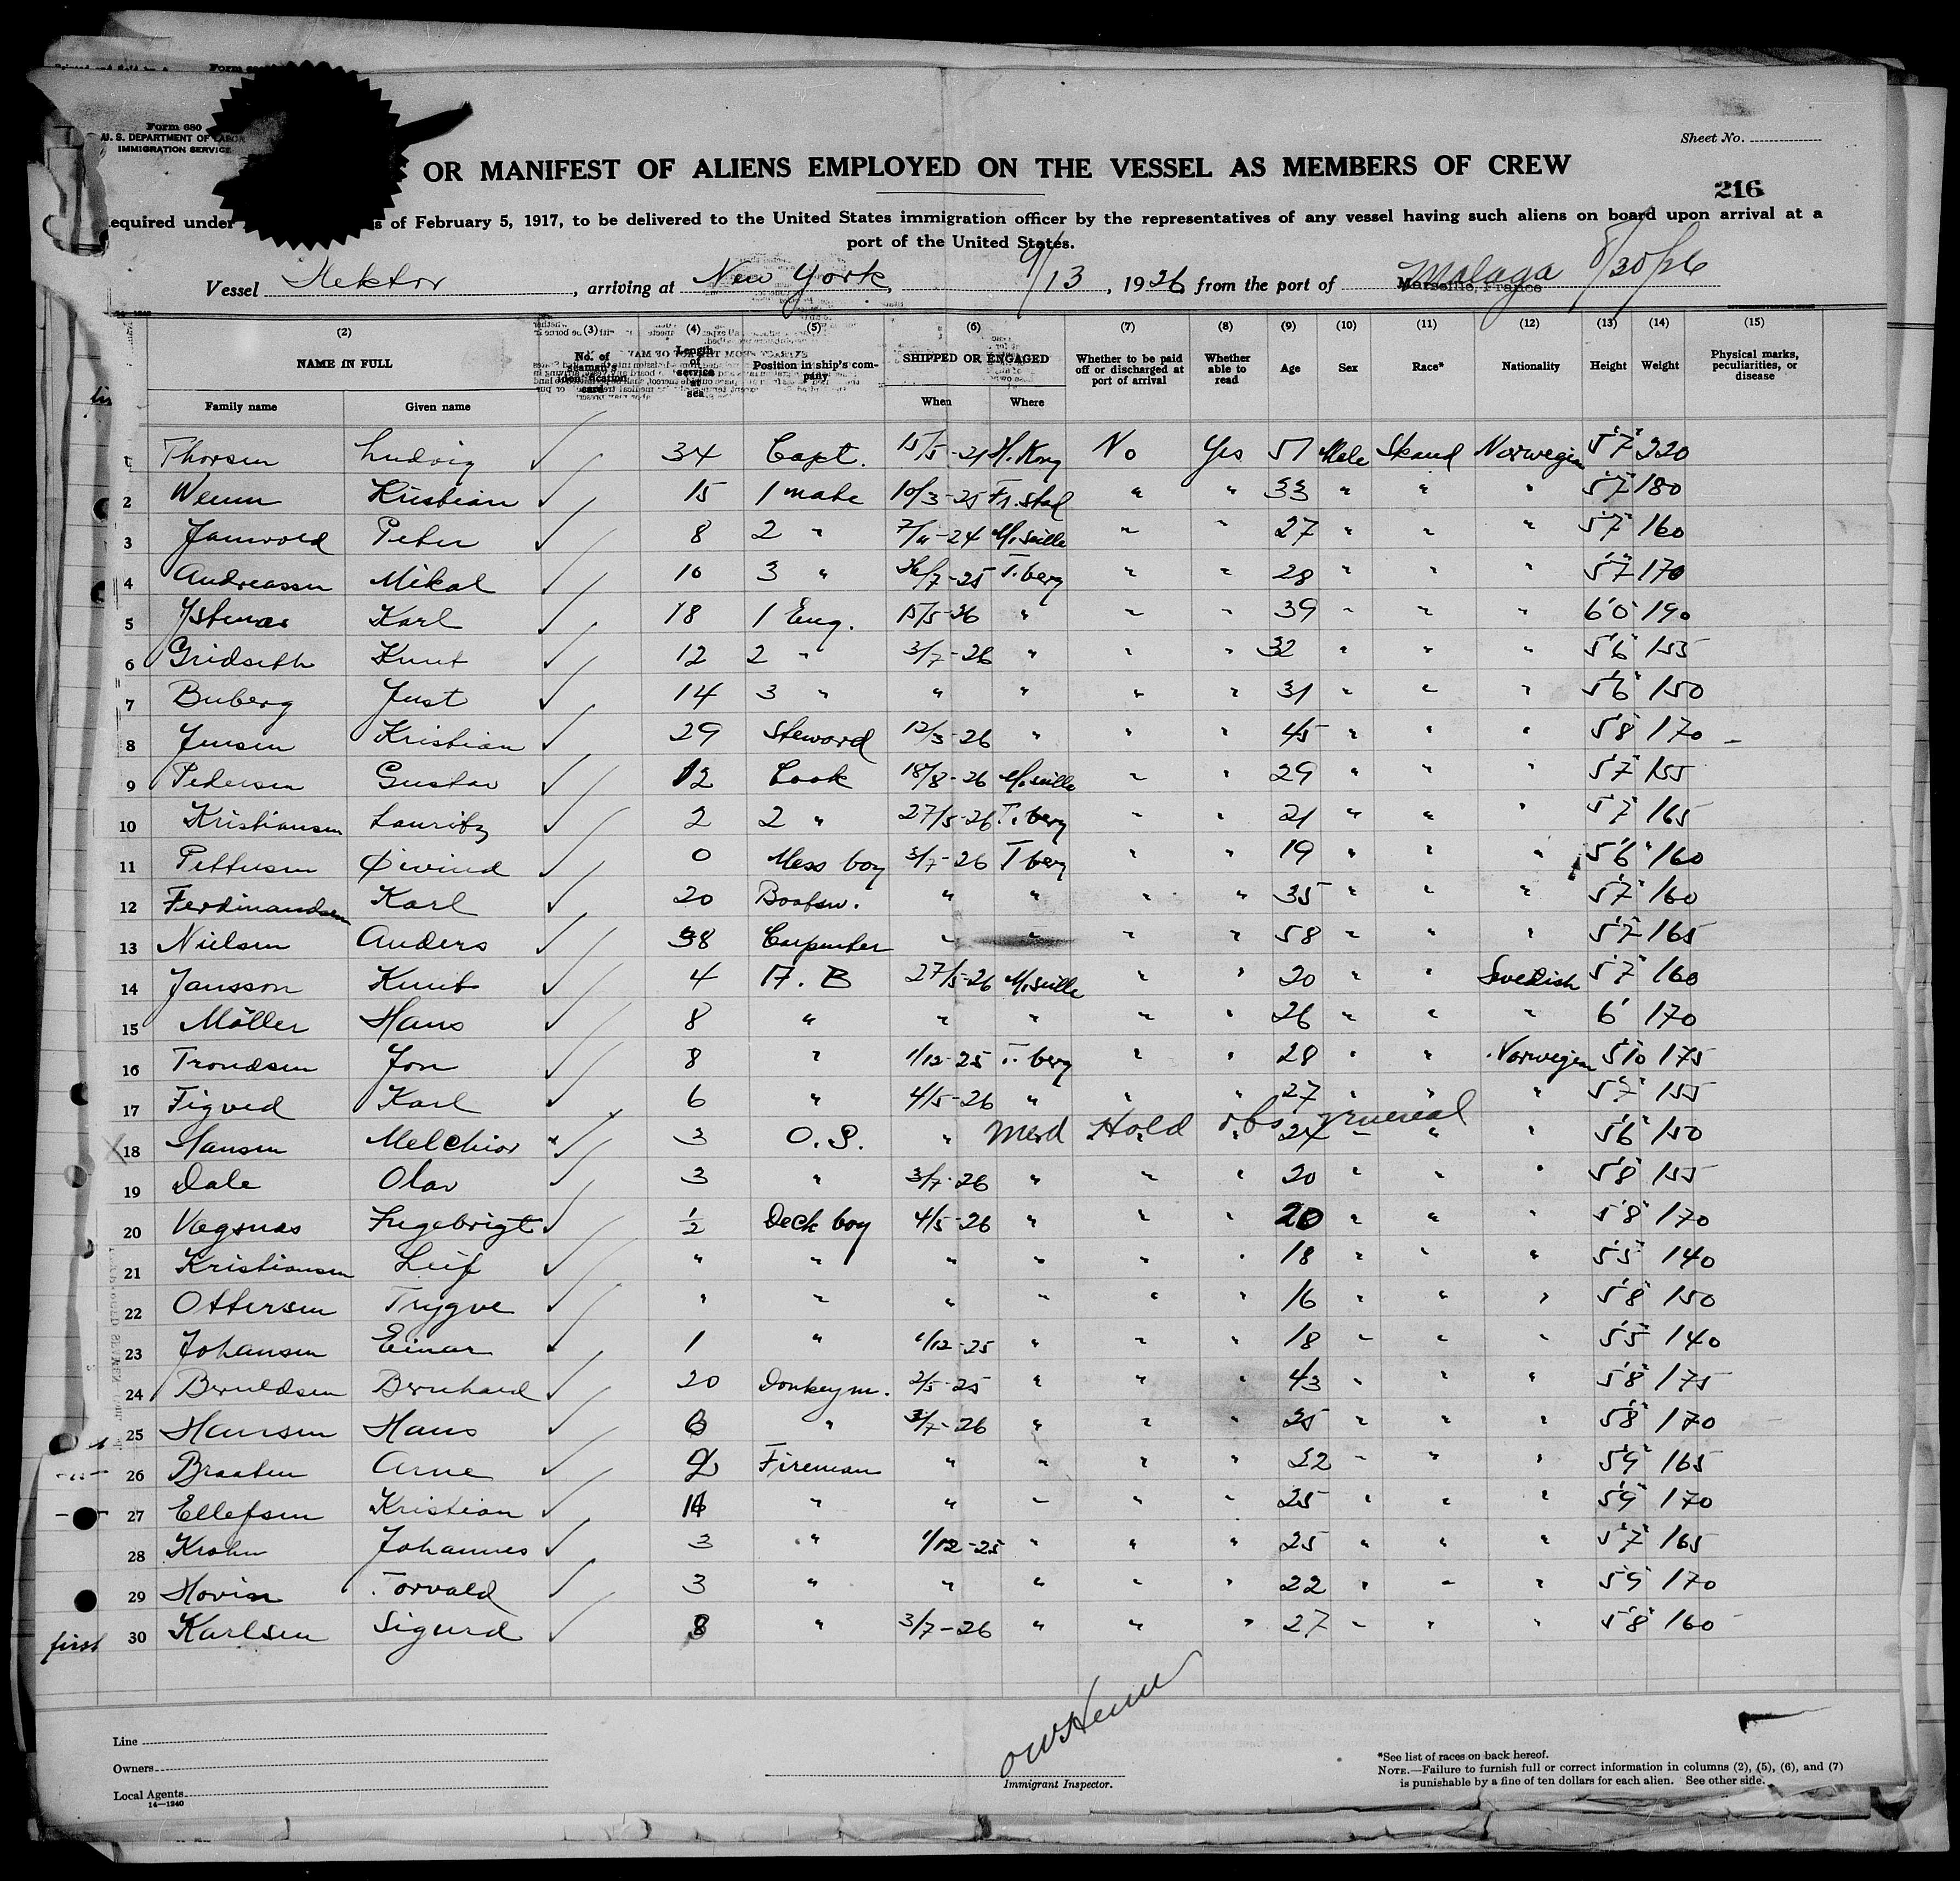 Form 680
U. S. DEPARTMENT OF LABOR
IMMIGRATION SERVICE
Sheet No.
OR MANIFEST OF ALIENS EMPLOYED ON THE VESSEL AS MEMBERS OF CREW
216
equired under s of February 5, 1917, to be delivered to the United States immigration officer by the representatives of any vessel having such aliens on board upon arrival at a
port of the United States.
Vessel Hektor, arriving at New York, 9/13, 1926, from the port of Marseille, France Malaga 8/30/26
(2) (3) (4) (5) (6) (7) (8) (9) (10) (11) (12) (13) (14) (15)
NAME IN FULL No. of seaman's identification card Length of service at sea Position in ship's company SHIPPED OR ENGAGED Whether to be paid off or discharged at port of arrival Whether able to read Age Sex Race* Nationality Height Weight Physical marks, peculiarities, or disease
Family name Given name When Where
1 Thorsen Ludvig ✓ 34 Capt. 15/5-21 H. Kong No Yes 51 Male Skand Norwegian 5'7" 220
2 Wenn Kristian ✓ 15 1 mate 10/3-25 Fr. stad " " 33 " " " 5'7" 180
3 Jamvold Peter ✓ 8 2 " 7/11-24 M. seille " " 27 " " " 5'7" 160
4 Andreassen Mikal ✓ 10 3 " 26/7-25 T. berg " " 28 " " " 5'7" 170
5 Ystenes Karl ✓ 18 1 Eng. 15/5-26 " " " 39 " " " 6'0" 190
6 Gridseth Knut ✓ 12 2 " 3/7-26 " " " 32 " " " 5'6" 155
7 Buberg Just ✓ 14 3 " " " " " 31 " " " 5'6" 150
8 Jensen Kristian ✓ 29 Steward 12/3-26 " " " 45 " " " 5'8 170
9 Pedersen Gustav ✓ 12 Cook 18/8-26 M. seille " " 29 " " " 5'7" 155
10 Kristiansen Lauritz ✓ 2 2 " 27/5-26 T. berg " " 21 " " " 5'7" 165
11 Pettersen Øivind ✓ 0 Mess boy 3/7-26 T berg " " 19 " " " 5'6" 160
12 Ferdinandsen Karl ✓ 20 Boatsw. " " " " 35 " " " 5'7" 160
13 Nielsen Anders ✓ 38 Carpenter " " " " 58 " " " 5'7" 165
14 Jansson Knut ✓ 4 A. B 27/5-26 M. seille " " 20 " " Swedish 5'7" 160
15 Möller Hans ✓ 8 " " " " " 26 " " " 6' 170
16 Trondsen Jon ✓ 8 " 1/12-25 T. berg " " 28 " " Norwegian 5'10 175
17 Figved Karl ✓ 6 " 4/5-26 " " " 27 " " " 5'7" 155
18 Hansen Melchior ✓ 3 O. S. " Med Hold obs " 24 " " " 5'6" 150
19 Dale Olav ✓ 3 " 3/7-26 " " " 20 " " " 5'8" 155
20 Vagsnas Ingebrigt ✓ 1/2 Deck boy 4/5-26 " " " 20 " " " 5'8" 170
21 Kristiansen Leif ✓ " " " " " " 18 " " " 5'5" 140
22 Ottersen Trygve ✓ " " " " " " 16 " " " 5'8" 150
23 Johansen Einar ✓ 1 " 1/12-25 " " " 18 " " " 5'5" 140
24 Beruldsen Bernhard ✓ 20 Donkeym. 2/5-25 " " " 43 " " " 5'8" 175
25 Hansen Hans ✓ 6 " 3/7-26 " " " 25 " " " 5'8" 170
26 Braaten Arne ✓ 2 Fireman " " " " 22 " " " 5'9" 165
27 Ellefsen Kristian ✓ " " " " " 25 " " " 5'9" 170
28 Krohn Johannes ✓ 3 " 1/12-25 " " " 25 " " " 5'7" 165
29 Hovin Torvald ✓ 3 " " " " " 22 " " " 5'9" 170
30 Karlsen Sigurd ✓ 8 " 3/7-26 " " " 27 " " " 5'8" 160
first
Line
Owners
Local Agents
14—1240
Immigrant Inspector.
*See list of races on back hereof.
NOTE.—Failure to furnish full or correct information in columns (2), (5), (6), and (7)
is punishable by a fine of ten dollars for each alien. See other side.